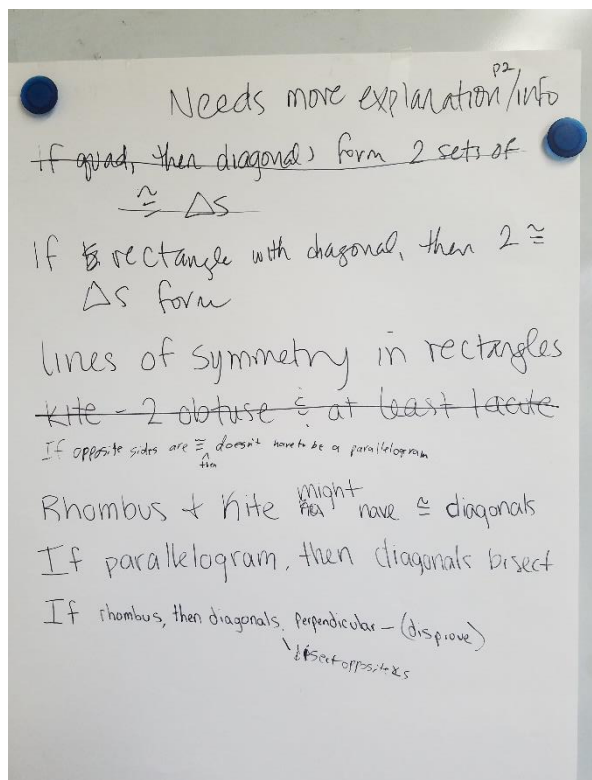 p2
Needs more explanation/info
If quad, then diagonals form 2 sets of
≅ Δs
If rectangle with diagonal, then 2 ≅
Δs form
lines of symmetry in rectangles
kite - 2 obtuse & at least 1 acute
If opposite sides are ≅, then doesn't have to be a parallelogram
Rhombus + Kite might have ≅ diagonals
If parallelogram, then diagonals bisect
If rhombus, then diagonals perpendicular - (disprove)
bisect opposite ∠s